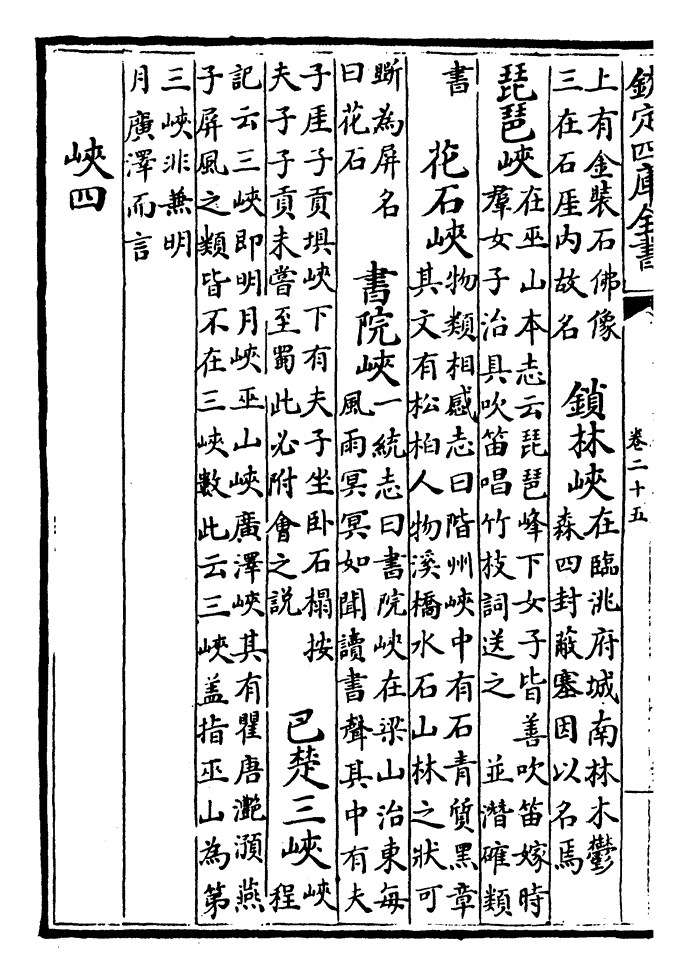 欽定四庫全書 卷二十五
上有金裝石佛像
三在石厓内故名
鎖林峽
在臨洮府城南林木鬱
森四封蔽塞因以名焉
琵琶峽
在巫山本志云琵琶峰下女子皆善吹笛嫁時
羣女子治具吹笛唱竹枝詞送之 並潛確類
書
花石峽
物類相感志曰階州峽中有石青質黑章
其文有松柏人物溪橋水石山林之狀可
斲為屏名
曰花石
書院峽
一統志曰書院峽在梁山治東每
風雨冥冥如聞讀書聲其中有夫
子厓子貢垻峽下有夫子坐卧石榻按
夫子子貢未嘗至蜀此必附會之説
巴楚三峽
峽
程
記云三峽即明月峽巫山峽廣澤峽其有瞿唐灔澦燕
子屏風之類皆不在三峽數此云三峽盖指巫山為第
三峽非兼明
月廣澤而言
峽四